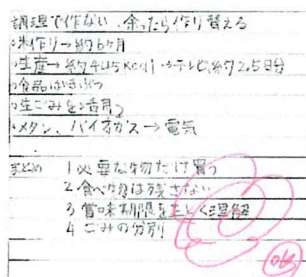 調理で作ない、余ったら作り替える
・米作り→約6ヶ月
・生産→約445kcal→テレビ約2.5日分
・食品はいきぶつ
・生ごみを活用
・メタン、バイオガス→電気
まとめ 1 必要な物だけ買う
2 食べ物は残さない
3 賞味期限を正しく理解
4 ごみの分別